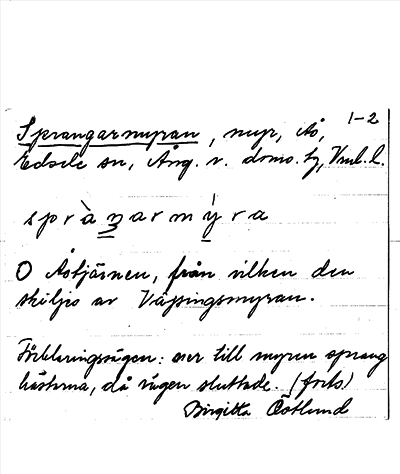 1-2
Sprangarmyran, myr, Ås,
Edsele sn, Ång. v. doms. hg, Vnl. l.
spràngarmýra
O Åstjärnen, från vilken den
skiljes av Väspingsmyran.
Förklaringssägen: ner till myren sprang
hästarna, då vägen sluttade. (forts)
Birgitta Östlund